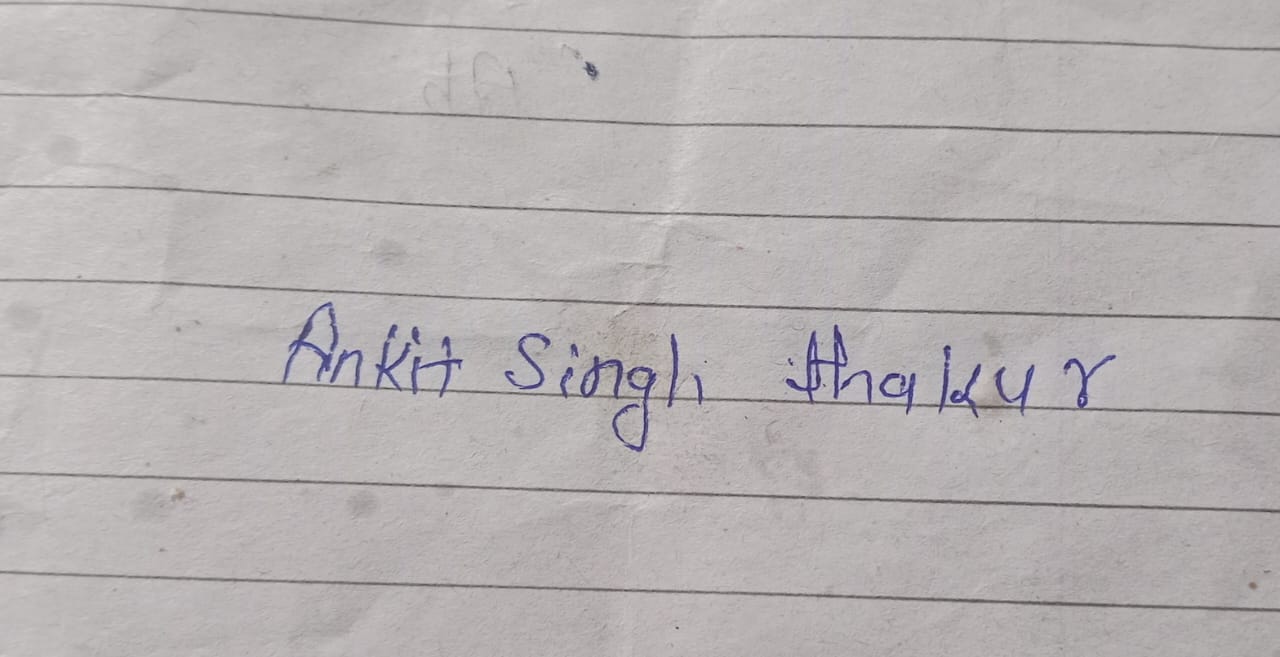 Ankit Singh thakur